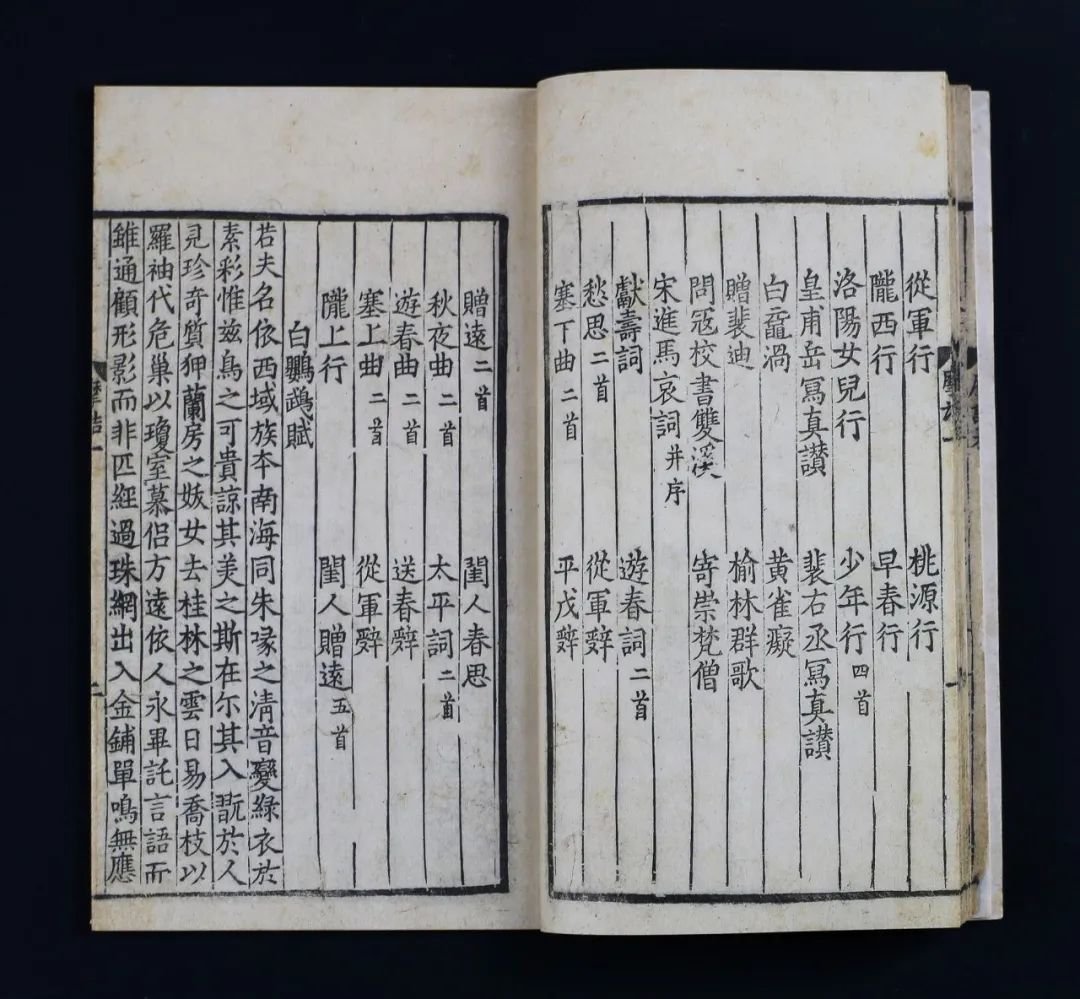 從軍行 桃源行
隴西行 早春行
洛陽女兒行 少年行四首
皇甫岳寫真讃 裴右丞寫真讃
白黿渦 黃雀癡
贈裴迪 榆林群歌
問冦校書雙溪 寄崇梵僧
宋進馬哀詞并序
獻壽詞 遊春詞二首
愁思二首 從軍辤
塞下曲二首 平戎辤
贈遠二首 閨人春思
秋夜曲二首 太平詞二首
遊春曲二首 送春辤
塞上曲二首 從軍辤
隴上行 閨人贈遠五首
白鸚鵡賦
若夫名依西域族夲南海同朱喙之清音變綠衣於
素彩惟兹鳥之可貴諒其美之斯在尓其入翫於人
見珍奇質狎蘭房之妖女去桂林之雲日易喬枝以
羅袖代危巢以瓊室慕侶方遠依人永畢託言語而
雖通顧形影而非匹經過珠網出入金鋪單鳴無應
摩詰一
二